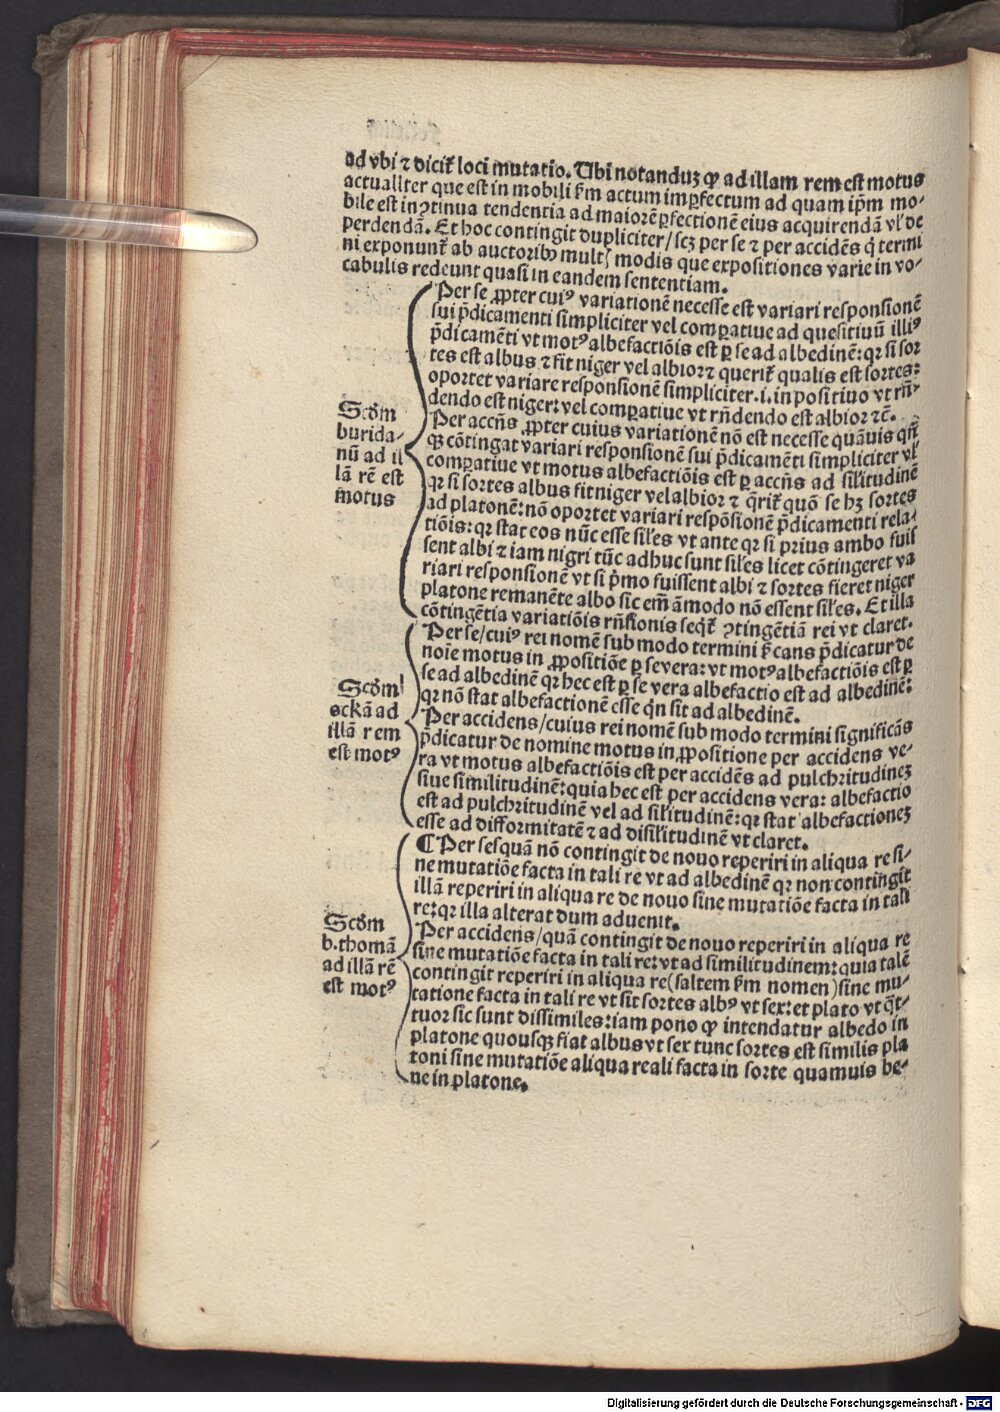 ad vbi ⁊ dicit̃ loci mutatio. Ubi notanduꝫ ꝙ ad illam rem est motus
actualiter que est in mobili fm̃ actum imꝑfectum ad quam ip̃m mo⸗
bile est in ꝯtinua tendentia ad maiorẽ ꝑfectionẽ eius acquirendã vl̓ de
perdendã. Et hoc contingit dupliciter/scꝫ per se ⁊ per accidẽs q̃ termi
ni exponunt̃ ab auctoribꝰ multꝭ modis que expositiones varie in vo⸗
cabulis redeunt quasi in eandem sententiam.
Per se ꝓpter cuiꝰ variationẽ necesse est variari responsionẽ
sui p̃dicamenti simpliciter vel comꝑatiue ad quesitiuũ illiꝰ
p̃dicamẽti vt motꝰ albefactiõis est ꝑ se ad albedinẽ: qꝛ si sor
tes est albus ⁊ fit niger vel albior ⁊ querit̃ qualis est sortes:
oportet variare responsionẽ simpliciter .i. in positiuo vt rñ⸗
dendo est niger: vel comꝑatiue vt rñdendo est albior ⁊c̃.
Per accñs ꝓpter cuius variationẽ nõ est necesse quãuis qñ
qꝫ cõtingat variari responsionẽ sui p̃dicamẽti simpliciter vl̓
comꝑatiue vt motus albefactiõis est ꝑ accñs ad sil̓itudinẽ
qꝛ si sortes albus fit niger vel albior ⁊ q̃rit̃ quõ se hꝫ sortes
ad platonẽ: nõ oportet variari respõsionẽ p̃dicamenti rela⸗
tiõis: qꝛ stat eos nũc esse sil̓es vt ante qꝛ si prius ambo fuis
sent albi ⁊ iam nigri tũc adhuc sunt sil̓es licet cõtingeret va
riari responsionẽ vt si p̃mo fuissent albi ⁊ sortes fieret niger
platone remanẽte albo sic em̃ ãmodo nõ essent sil̓es. Et illa
cõtingẽtia variatiõis rñsionis seqt̃ ꝯtingẽtiã rei vt claret.
Scd̓m
burida⸗
nũ ad il
lã rẽ est
motus
Per se/cuiꝰ rei nomẽ sub modo termini sĩcans p̃dicatur de
noĩe motus in ꝓpositiõe ꝑ se vera: vt motꝰ albefactiõis est ꝑ
se ad albedinẽ qꝛ hec est ꝑ se vera albefactio est ad albedinẽ:
qꝛ nõ stat albefactionẽ esse q̃n sit ad albedinẽ.
Per accidens/cuius rei nomẽ sub modo termini significãs
p̃dicatur de nomine motus in ꝓpositione per accidens ve⸗
ra vt motus albefactiõis est per accidẽs ad pulchꝛitudineꝫ
siue similitudinẽ: quia hec est per accidens vera: albefactio
est ad pulchꝛitudinẽ vel ad sil̓itudinẽ: qꝛ stat albefactioneꝫ
esse ad difformitatẽ ⁊ ad disil̓itudinẽ vt claret.
Scd̓m
sckã ad
illã rem
est motꝰ
¶ Per se/quã nõ contingit de nouo reperiri in aliqua re si⸗
ne mutatiõe facta in tali re vt ad albedinẽ qꝛ non contingit
illã reperiri in aliqua re de nouo sine mutatiõe facta in tali
re: qꝛ illa alterat dum aduenit.
Per accidens/quã contingit de nouo reperiri in aliqua re
sine mutatiõe facta in tali re: vt ad similitudinem: quia talẽ
contingit reperiri in aliqua re (saltem fm̃ nomen) sine mu⸗
tatione facta in tali re vt sit sortes albꝰ vt sex: et plato vt q̃t⸗
tuor sic sunt dissimiles: iam pono ꝙ intendatur albedo in
platone quousqꝫ fiat albus vt sex tunc sortes est similis pla
toni sine mutatiõe aliqua reali facta in sorte quamuis be⸗
ne in platone.
Scd̓m
b. thomã
ad illã rẽ
est motꝰ
Digitalisierung gefördert durch die Deutsche Forschungsgemeinschaft - DFG